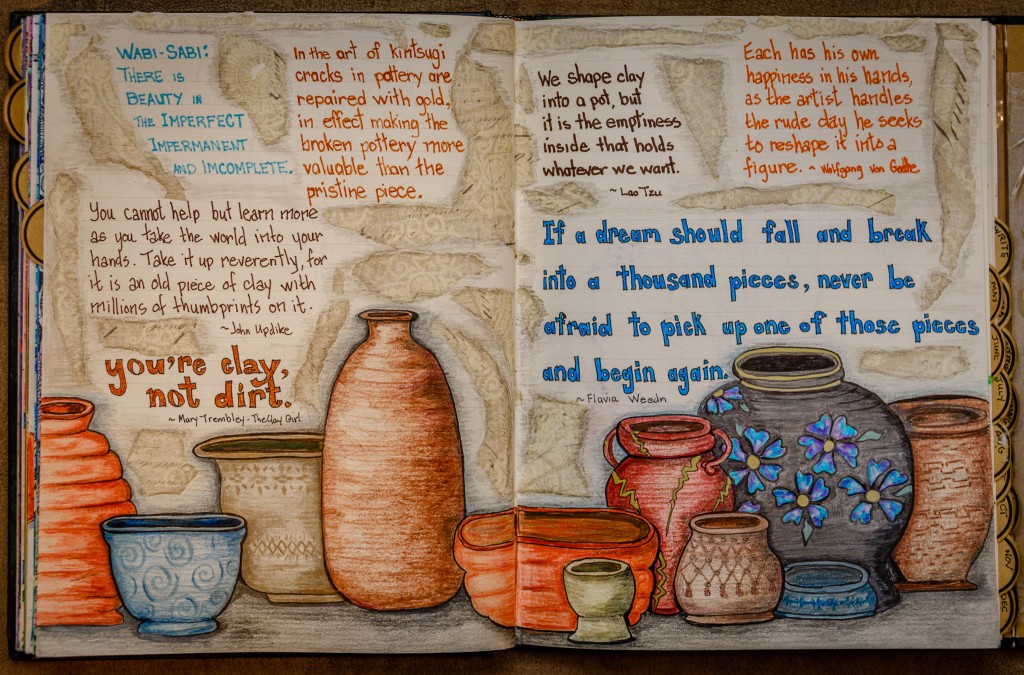 WABI-SABI:
THERE IS
BEAUTY IN
THE IMPERFECT
IMPERMANENT
AND IMCOMPLETE.
In the art of kintsugi
cracks in pottery are
repaired with gold,
in effect making the
broken pottery more
valuable than the
pristine piece.
You cannot help but learn more
as you take the world into your
hands. Take it up reverently, for
it is an old piece of clay with
millions of thumbprints on it.
~John Updike
you're clay,
not dirt.
~ Mary Trembley - The Clay Girl
We shape clay
into a pot, but
it is the emptiness
inside that holds
whatever we want.
~ Lao Tzu
Each has his own
happiness in his hands,
as the artist handles
the rude clay he seeks
to reshape it into a
figure. ~ Wolfgang von Goethe
If a dream should fall and break
into a thousand pieces, never be
afraid to pick up one of those pieces
and begin again.
~ Flavia Weedn
JUNE
JULY
NOV
DEC